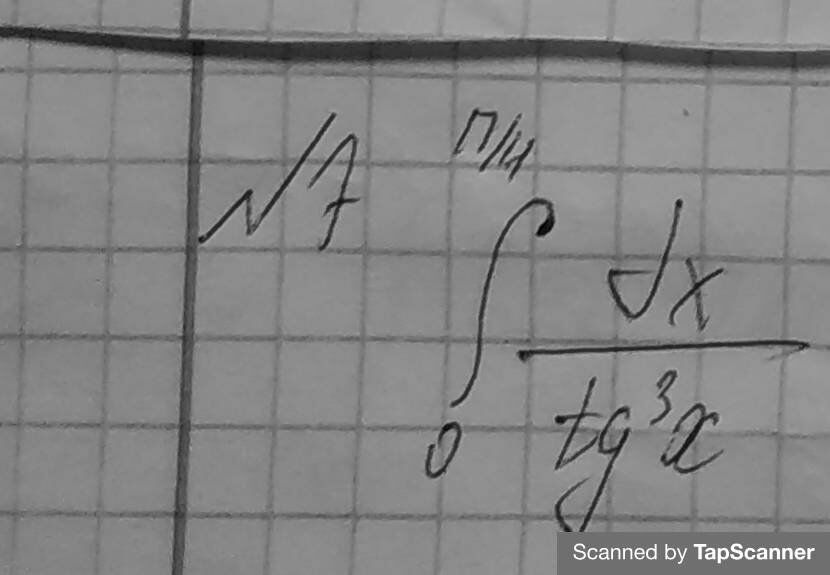 №7
π/4
∫ dx
0 tg³x
Scanned by TapScanner